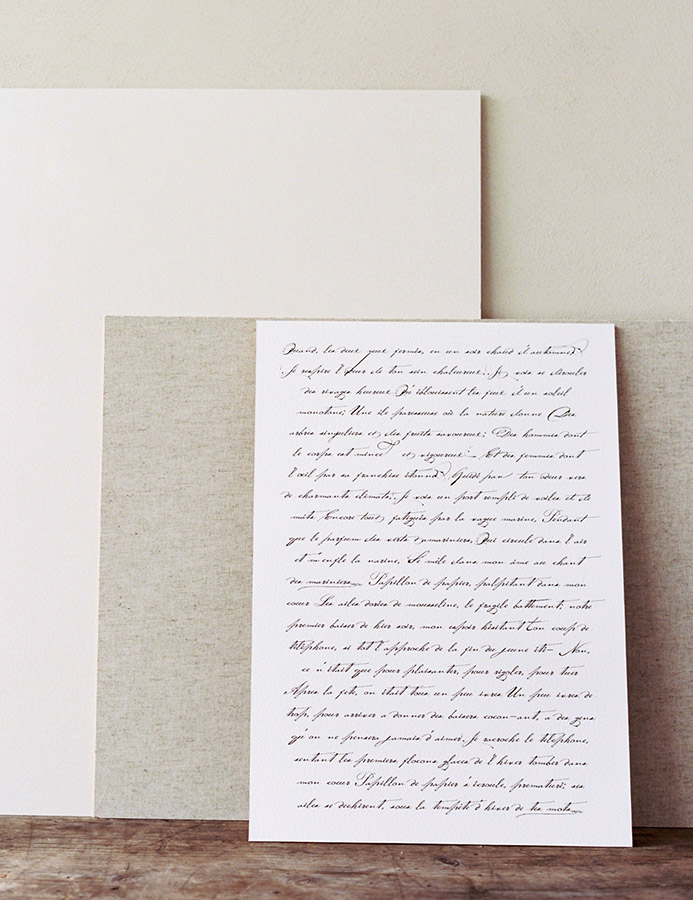 Quand, les deux yeux fermés, en un soir chaud d'automne
Je respire l'odeur de ton sein chaleureux, Je vois se dérouler
des rivages heureux Qu'éblouissent les feux d'un soleil
monotone; Une île paresseuse où la nature donne Des
arbres singuliers et des fruits savoureux; Des hommes dont
le corps est mince et vigoureux Et des femmes dont
l'œil par sa franchise étonne. Guidé par ton odeur vers
de charmants climats, Je vois un port rempli de voiles et de
mâts Encore tout fatigués par la vague marine, Pendant
que le parfum des verts tamariniers, Qui circule dans l'air
et m'enfle la narine, Se mêle dans mon âme au chant
des mariniers. Papillon de papier, palpitant dans mon
cœur Les ailes dorées de mousseline, le fragile battement; notre
premier baiser de hier soir, mon espoir hésitant Ton coup de
téléphone, si tôt l'approche de la fin du jeune été- Non,
ce n'était que pour plaisanter, pour rigoler, pour tuer
Après la fête, on était tous un peu ivres Un peu ivres de
trop, pour arriver a donner des baisers cocon-ant, a des gens
qu'on ne pensera jamais d'aimer. Je racroche le téléphone,
sentant les premiers flocons glacés de l'hiver tomber dans
mon cœur Papillon de papier s'écroule, prematuré; ses
ailes se dechirent, sous la tempête d'hiver de tes mots